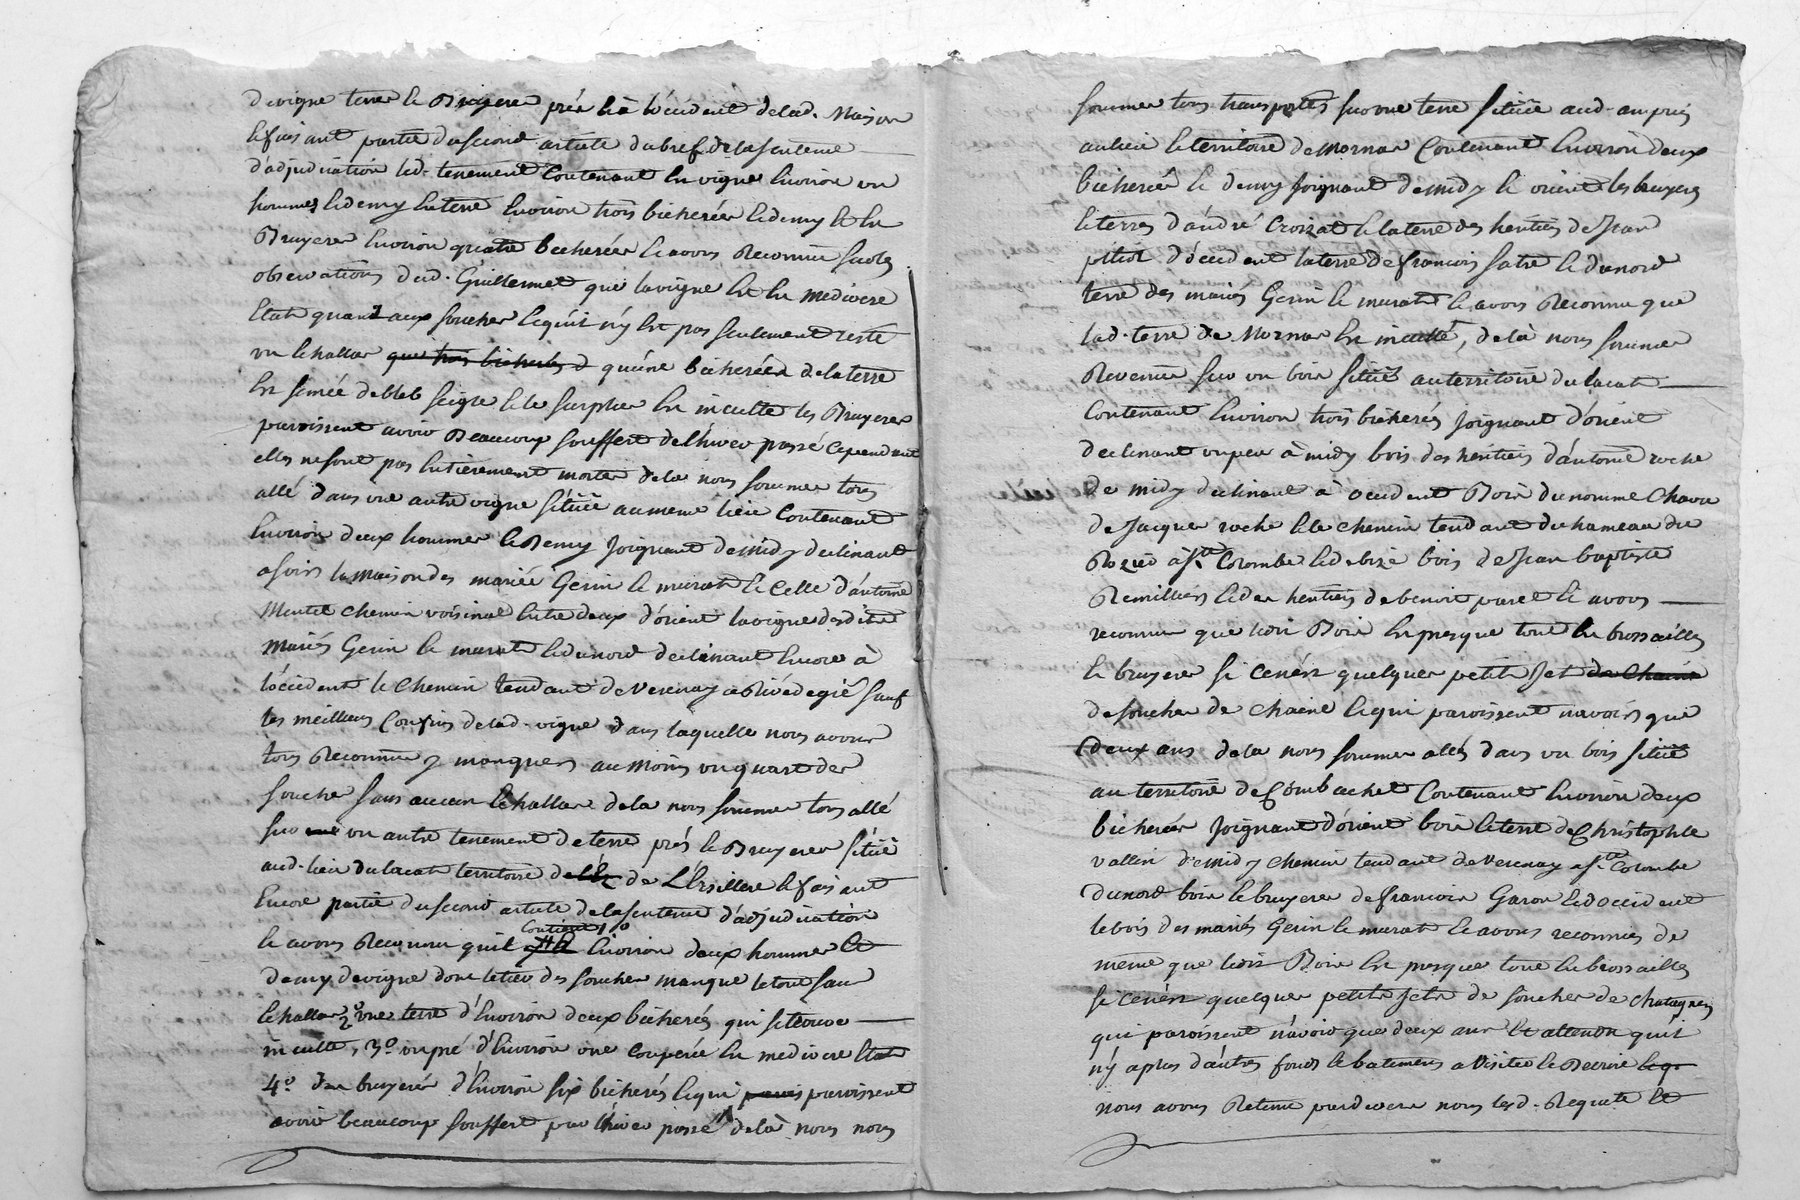 de vigne terres & Bruyeres près & à l'occident de lad. Maison
& faisant partie du second article du bref de la sentence
d'adjudication led. tenement Contenant en vigne Environ un
hommes & demy en terre Environ trois bicherées & demy & en
Bruyeres Environ quatre bicherées & avons Reconnu sur les
observations dud. Guillermet que la vigne Est En mediocre
Etat quant aux souches & qu'il n'y Est pas seulement resté
un Echallas que trois bicherées d qu'une bicherée de la terre
Est semée de bled seigle & le surplus Est inculte les Bruyeres
paroissent avoir Beaucoup souffert de l'hiver passé Cependant
elles ne sont pas Entièrement mortes de la nous sommes tous
allé dans une autre vigne située au meme lieu Contenant
Environ deux hommes & Demy Joignant de midy declinant
a soir la maison des mariés Gerin & murat & Celle d'antoine
Mentel chemin voisinal Entre deux d'orient la vigne desdits
Mariés Gerin & murat & du nord declinant Encore à
l'occident le Chemin tendant de Verenay a sauf
les meilleurs Confins de lad. vigne dans laquelle nous avons
tous Reconnu y manquer au moins un quart des
souches sans aucun Echallas de la nous sommes tous allé
sur une un autre tenement de terre près & Bruyeres situé
aud. lieu du lacat territoire de de L'Ersillere & faisant
Encore partie du second article de la sentence d'adjudication
& avons Reconnu qu'il Contient 1° Environ deux hommes &
demy de vigne dont le tiers des souches manque le tout sans
Echallas 2° une terre d'Environ deux bicherées qui se trouve
inculte, 3° un pré d'Environ une coupée En mediocre Etat
4° des bruyeres d'Environ six bicherées & qui parois paroissent
avoir beaucoup souffert par l'hiver passé de là nous nous
sommes tous transportés sur une terre située aud. ampuis
au lieu & territoire de Mornas Contenant Environ deux
bicherées & demy Joignant de midy & orient les bruyeres
& terres d'andré Croizat & la terre des heritiers de Jean
pitiot d'occident la terre de francois satre & du nord
terre des mariés Gerin & murat & avons Reconnu que
lad. terre de Mornas Est inculte, de là nous sommes
Revenu sur un bois situé au territoire du lacat
Contenant Environ trois bicherées Joignant d'orient
declinant un peu à midy bois des heritiers d'antoine roche
de midy declinant à occident Bois du nommé Chavas
de Jacques roche & le chemin tendant du hameau du
Rozier à Ste Colombe & de bize bois de Jean baptiste
Remilliers & des heritiers de benoit paret & avons
reconnu que ledit Bois Est presque tout En brossailles
& bruyeres si ce n'est quelques petits Jet de Chaine
de souches de chaine & qui paroissent n'avoir que
deux ans de la nous sommes allés dans un bois situé
au territoire de Combachet Contenant Environ deux
bicherées Joignant d'orient bois & terre de Christophle
vallin de midy chemin tendant de Verenay a Ste Colombe
du nord bois & bruyeres de francois Garon & d'occident
le bois des mariés Gerin & murat & avons reconnu de
même que ledit Bois Est presque tout En brossailles
si ce n'est quelques petits Jets de souches de chataigners
qui paroissent n'avoir que deux ans & attendu qu'il
n'y a plus d'autres fonds & batimens a visiter & Decrire & q
nous avons Retenu pardevers nous lesd. Requete &